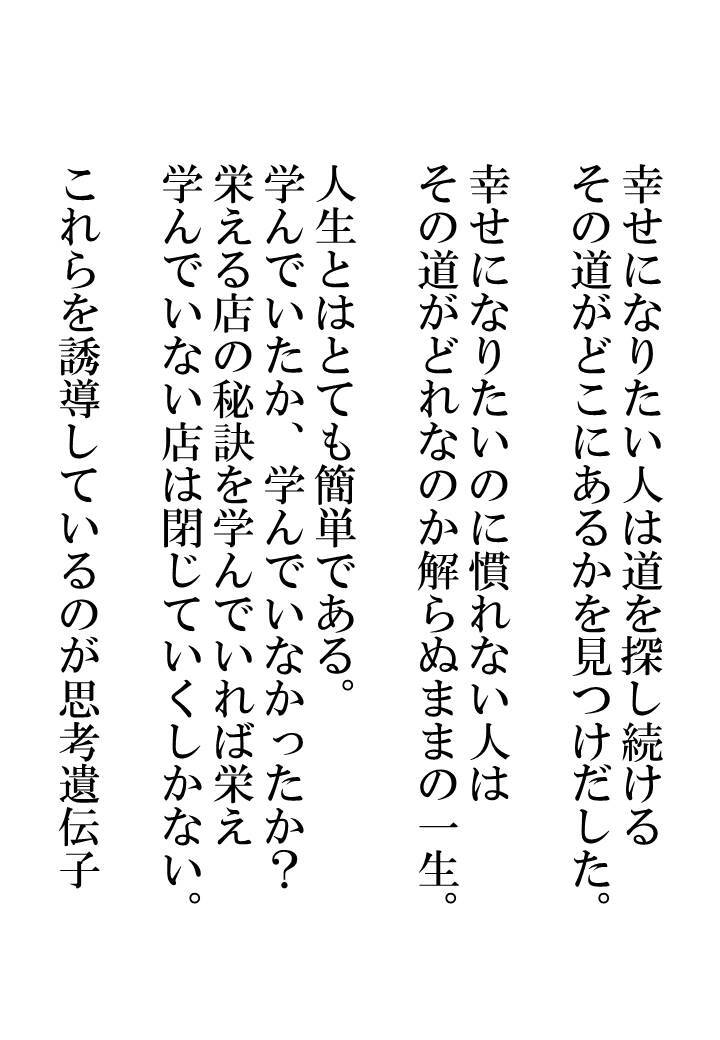 幸せになりたい人は道を探し続ける
その道がどこにあるかを見つけだした。
幸せになりたいのに慣れない人は
その道がどれなのか解らぬままの一生。
人生とはとても簡単である。
学んでいたか、学んでいなかったか？
栄える店の秘訣を学んでいれば栄え
学んでいない店は閉じていくしかない。
これらを誘導しているのが思考遺伝子